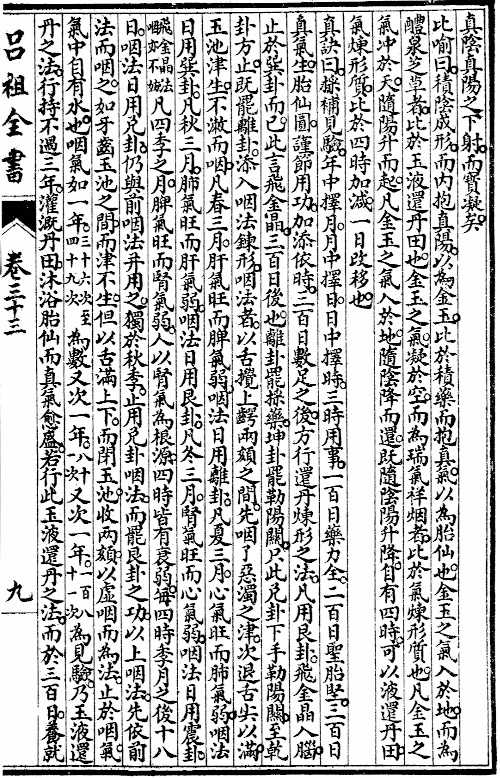 真陰真陽之下射而寶凝矣
比喻曰積陰成形而內抱真陽以為金玉比於積藥而抱真氣以為胎仙也金玉之氣入於地而為
醴泉芝草者比於玉液還丹田也金玉之氣凝於空而為瑞氣祥烟者比於氣煉形質也凡金玉之
氣冲於天隨陽升而起凡金玉之氣入於地隨陰降而還既隨陰陽升降自有四時可以液還丹田
氣煉形質比於四時加減一日改移也
真訣曰採補見驗年中擇月月中擇日日中擇時三時用事一百日藥力全二百日聖胎堅三百日
真氣生胎仙圓謹節用功加添依時三百日數足之後方行還丹煉形之法凡用艮卦飛金晶入腦
止於巽卦而已此言飛金晶三百日後也離卦罷採藥坤卦罷勒陽關只此兌卦下手勒陽關至乾
卦方止既罷離卦添入咽法鍊形咽法者以舌攪上齶兩頰之間先咽了惡濁之津次退舌尖以滿
玉池津生不漱而咽凡春三月肝氣旺而脾氣弱咽法日用離卦凡夏三月心氣旺而肺氣弱咽法
日用巽卦凡秋三月肺氣旺而肝氣弱咽法日用艮卦凡冬三月腎氣旺而心氣弱咽法日用震卦
飛金晶法咽亦不妨凡四季之月脾氣旺而腎氣弱人以腎氣為根源四時皆有衰弱每四時季月之後十八
日咽法日用兌卦仍與前咽法并用之獨於秋季止用兌卦咽法而罷艮卦之功以上咽法先依前
法而咽之如牙齒玉池之間而津不生但以舌滿上下而閉玉池收兩頰以虛咽而為法止於咽氣
氣中自有水也咽氣如一年三十六次至四十九次為數又次一年八十一次又次一年一百八十一次為見驗乃玉液還
丹之法行持不過三年灌溉丹田沐浴胎仙而真氣愈盛若行此玉液還丹之法而於三百日養就
呂祖全書
卷三十三
九